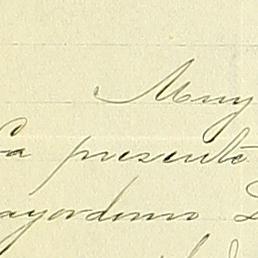 Muy
La presente
ayordomo